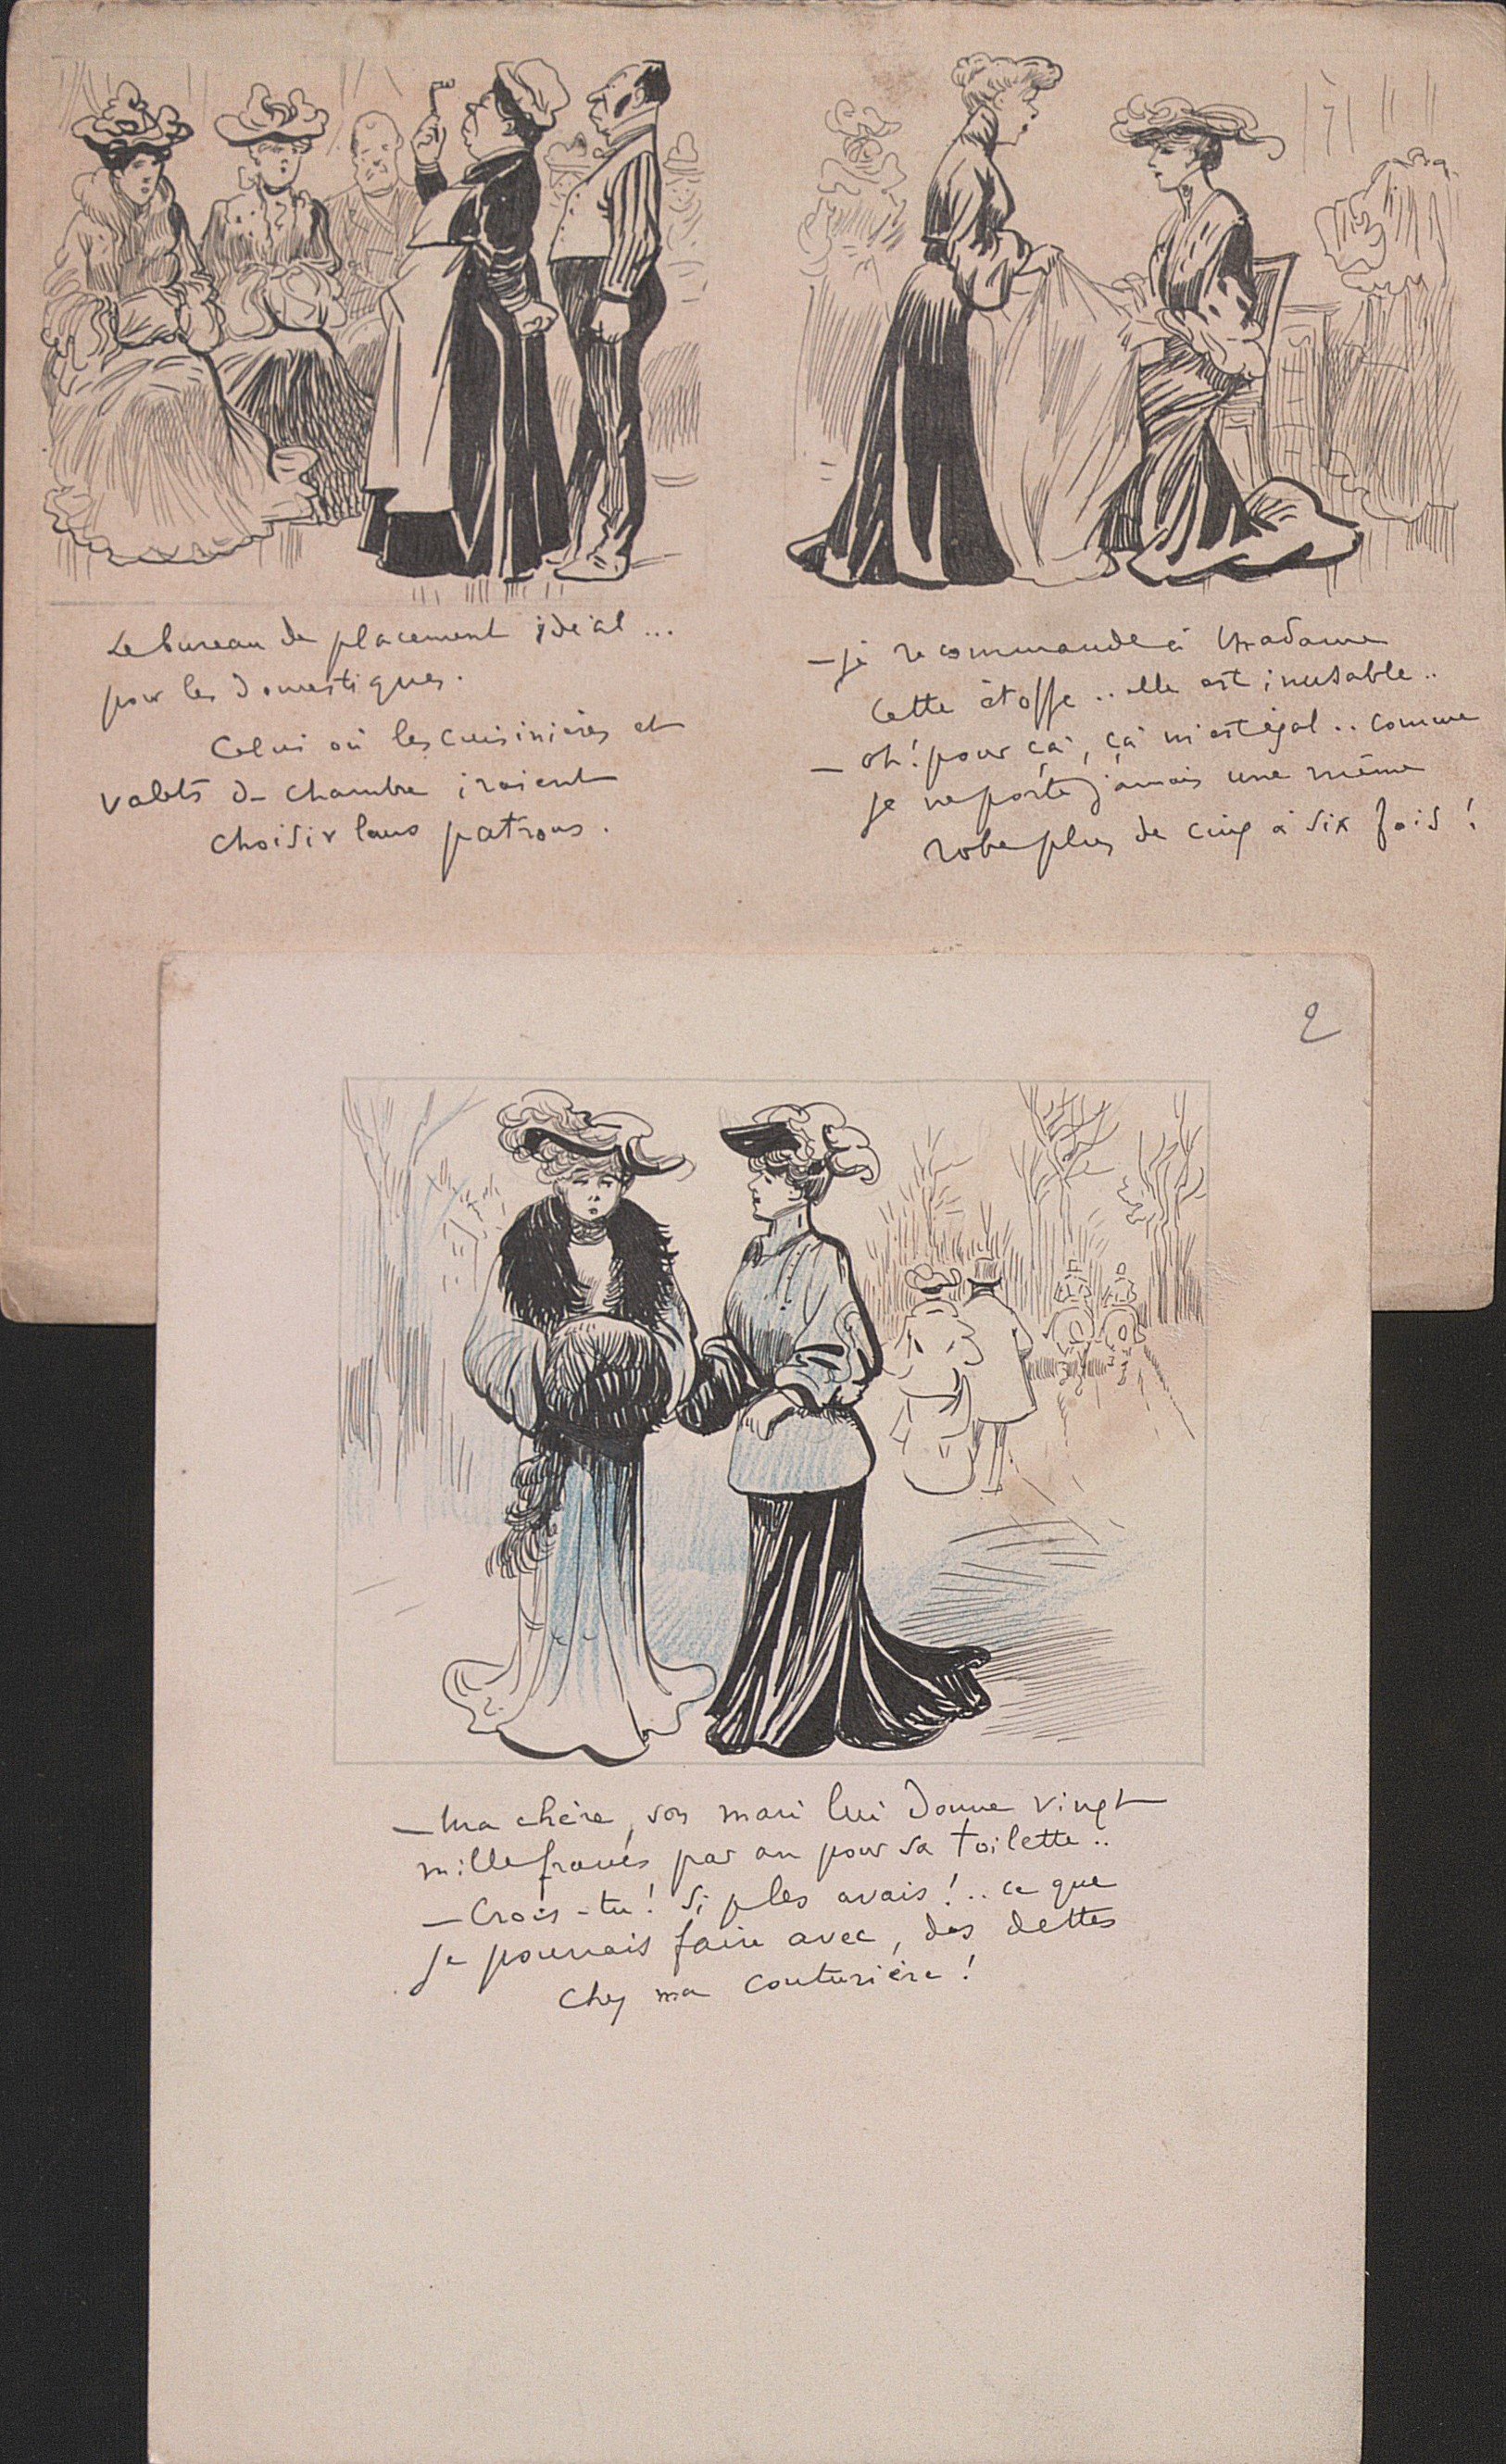 Le bureau de placement idéal...
pour les domestiques.
Celui où les cuisinières et
valets de chambre iraient
choisir leurs patrons.
- je recommande à Madame
cette étoffe .. elle est inusable ..
- oh ! pour ça, ça m'est égal .. comme
je ne porte jamais une même
robe plus de cinq à six fois !
2
- Ma chère, son mari lui donne vingt
mille francs par an pour sa toilette ..
- Crois-tu ! Si j'les avais ! .. ce que
je pourrais faire avec, des dettes
chez ma couturière !